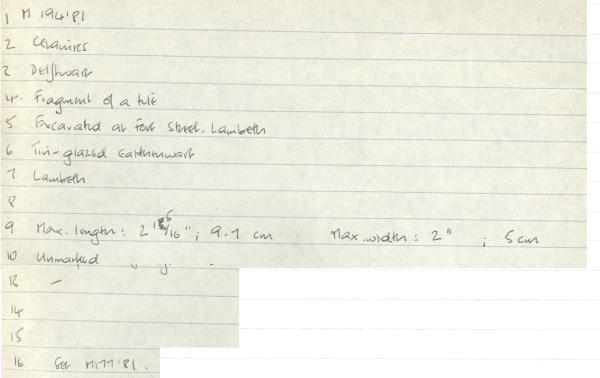 1 M 194'81
2 Ceramics
3 Delftware
4. Fragment of a tile
5 Excavated at Fore Street. Lambeth
6 Tin-glazed earthenware
7 Lambeth
8
9 Max. length: 2 15/16"; 9.1 cm Max. width: 2" ; 5 cm
10 Unmarked
13 —
14
15
16 See M177'81.